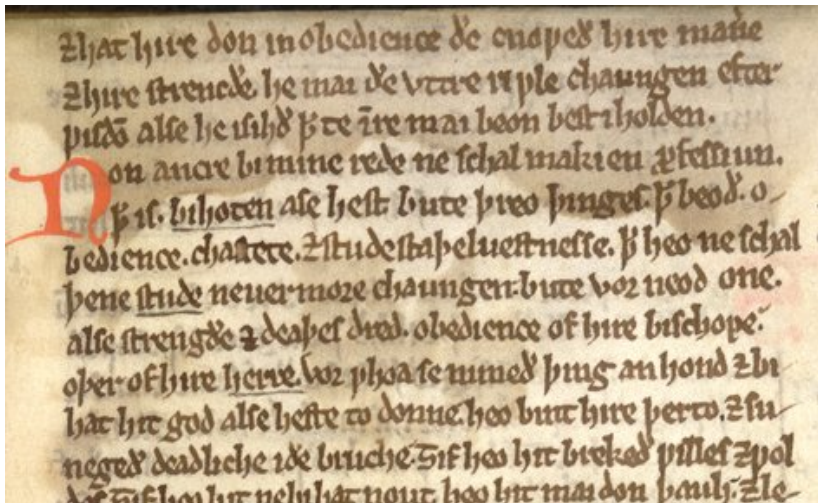 ⁊hat hire don in obedience ðe cnoƿeð hire manẽ
⁊ hire strencðe. he mai ðe vttre riƿle chaungen efter
ƿisdõ alse he isihð ꝥ te ĩre mai beon best iholden.
Non ancre bi mine rede ne schal makien ꝓfessiun.
ꝥ is. bihoten ase hest. bute þreo þinges. ꝥ beoð. o-
bedience. chastete. ⁊ studestaþeluestnesse. ꝥ heo ne schal
þene stude neuer more chaungen: bute vor neod one.
alse strengðe ⁊ deaþes dred. obedience of hire bischope.
oþer of hire herre. vor ƿhoa se nimeð þing an hond ⁊ bi
hat hit god alse heste to donne. heo bint hire þerto. ⁊ su-
negeð deadliche iðe bruche. ȝif heo hit brekeð ƿilles ⁊ ƿol
des. ȝif heo hit nelt hat nout heo hit mai don þauh. ⁊ le